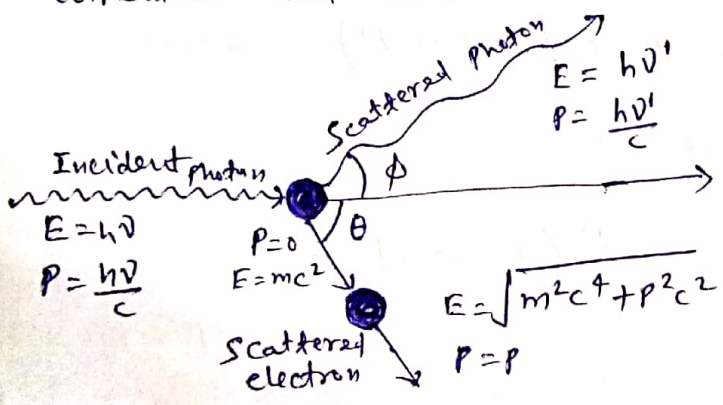 Scattered photon
E = hν'
P = hν'/c
Incident photon
ϕ
E = hν
P = hν/c
P = 0
E = mc²
θ
E = √m²c⁴ + p²c²
P = p
Scattered
electron